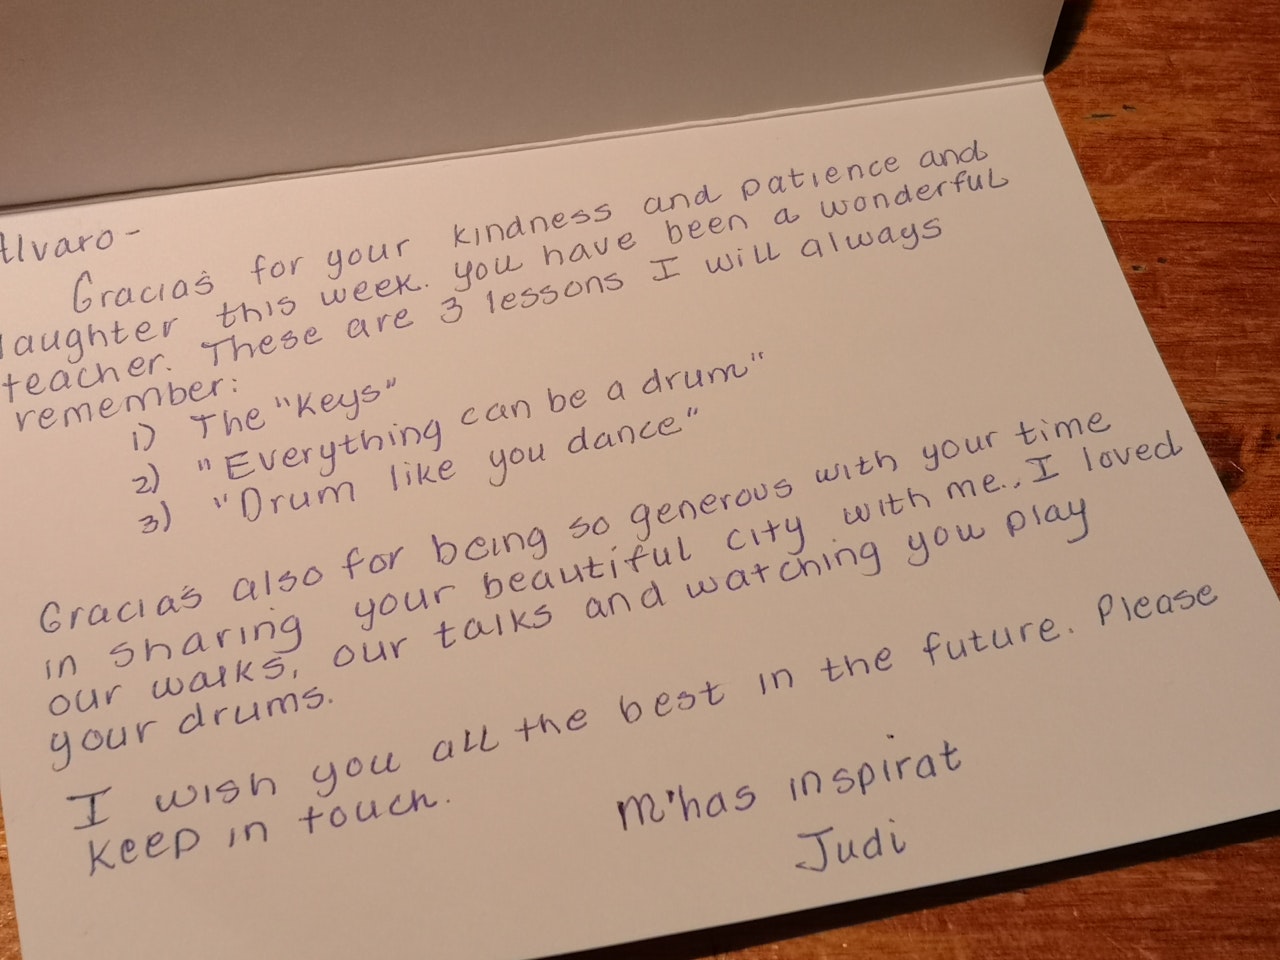 Alvaro -
Gracias for your kindness and patience and
laughter this week. you have been a wonderful
teacher. These are 3 lessons I will always
remember:
1) The "Keys"
2) "Everything can be a drum"
3) "Drum like you dance"
Gracias also for being so generous with your time
in sharing your beautiful city with me.. I loved
our walks, our talks and watching you play
your drums.
I wish you all the best in the future. Please
keep in touch.
M'has inspirat
Judi